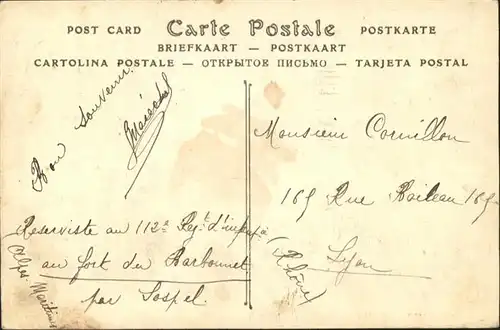 POST CARD Carte Postale POSTKARTE
BRIEFKAART — POSTKAART
CARTOLINA POSTALE — ОТКРЫТОЕ ПИСЬМО — TARJETA POSTAL
Bon Souvenir
Maréchal
Reserviste au 112e Regt d'infrie
au fort du Barbonnet
par Sospel.
(Alpes Maritimes
Monsieur Cornillon
165 Rue Boileau 165
Lyon
(Rhône)